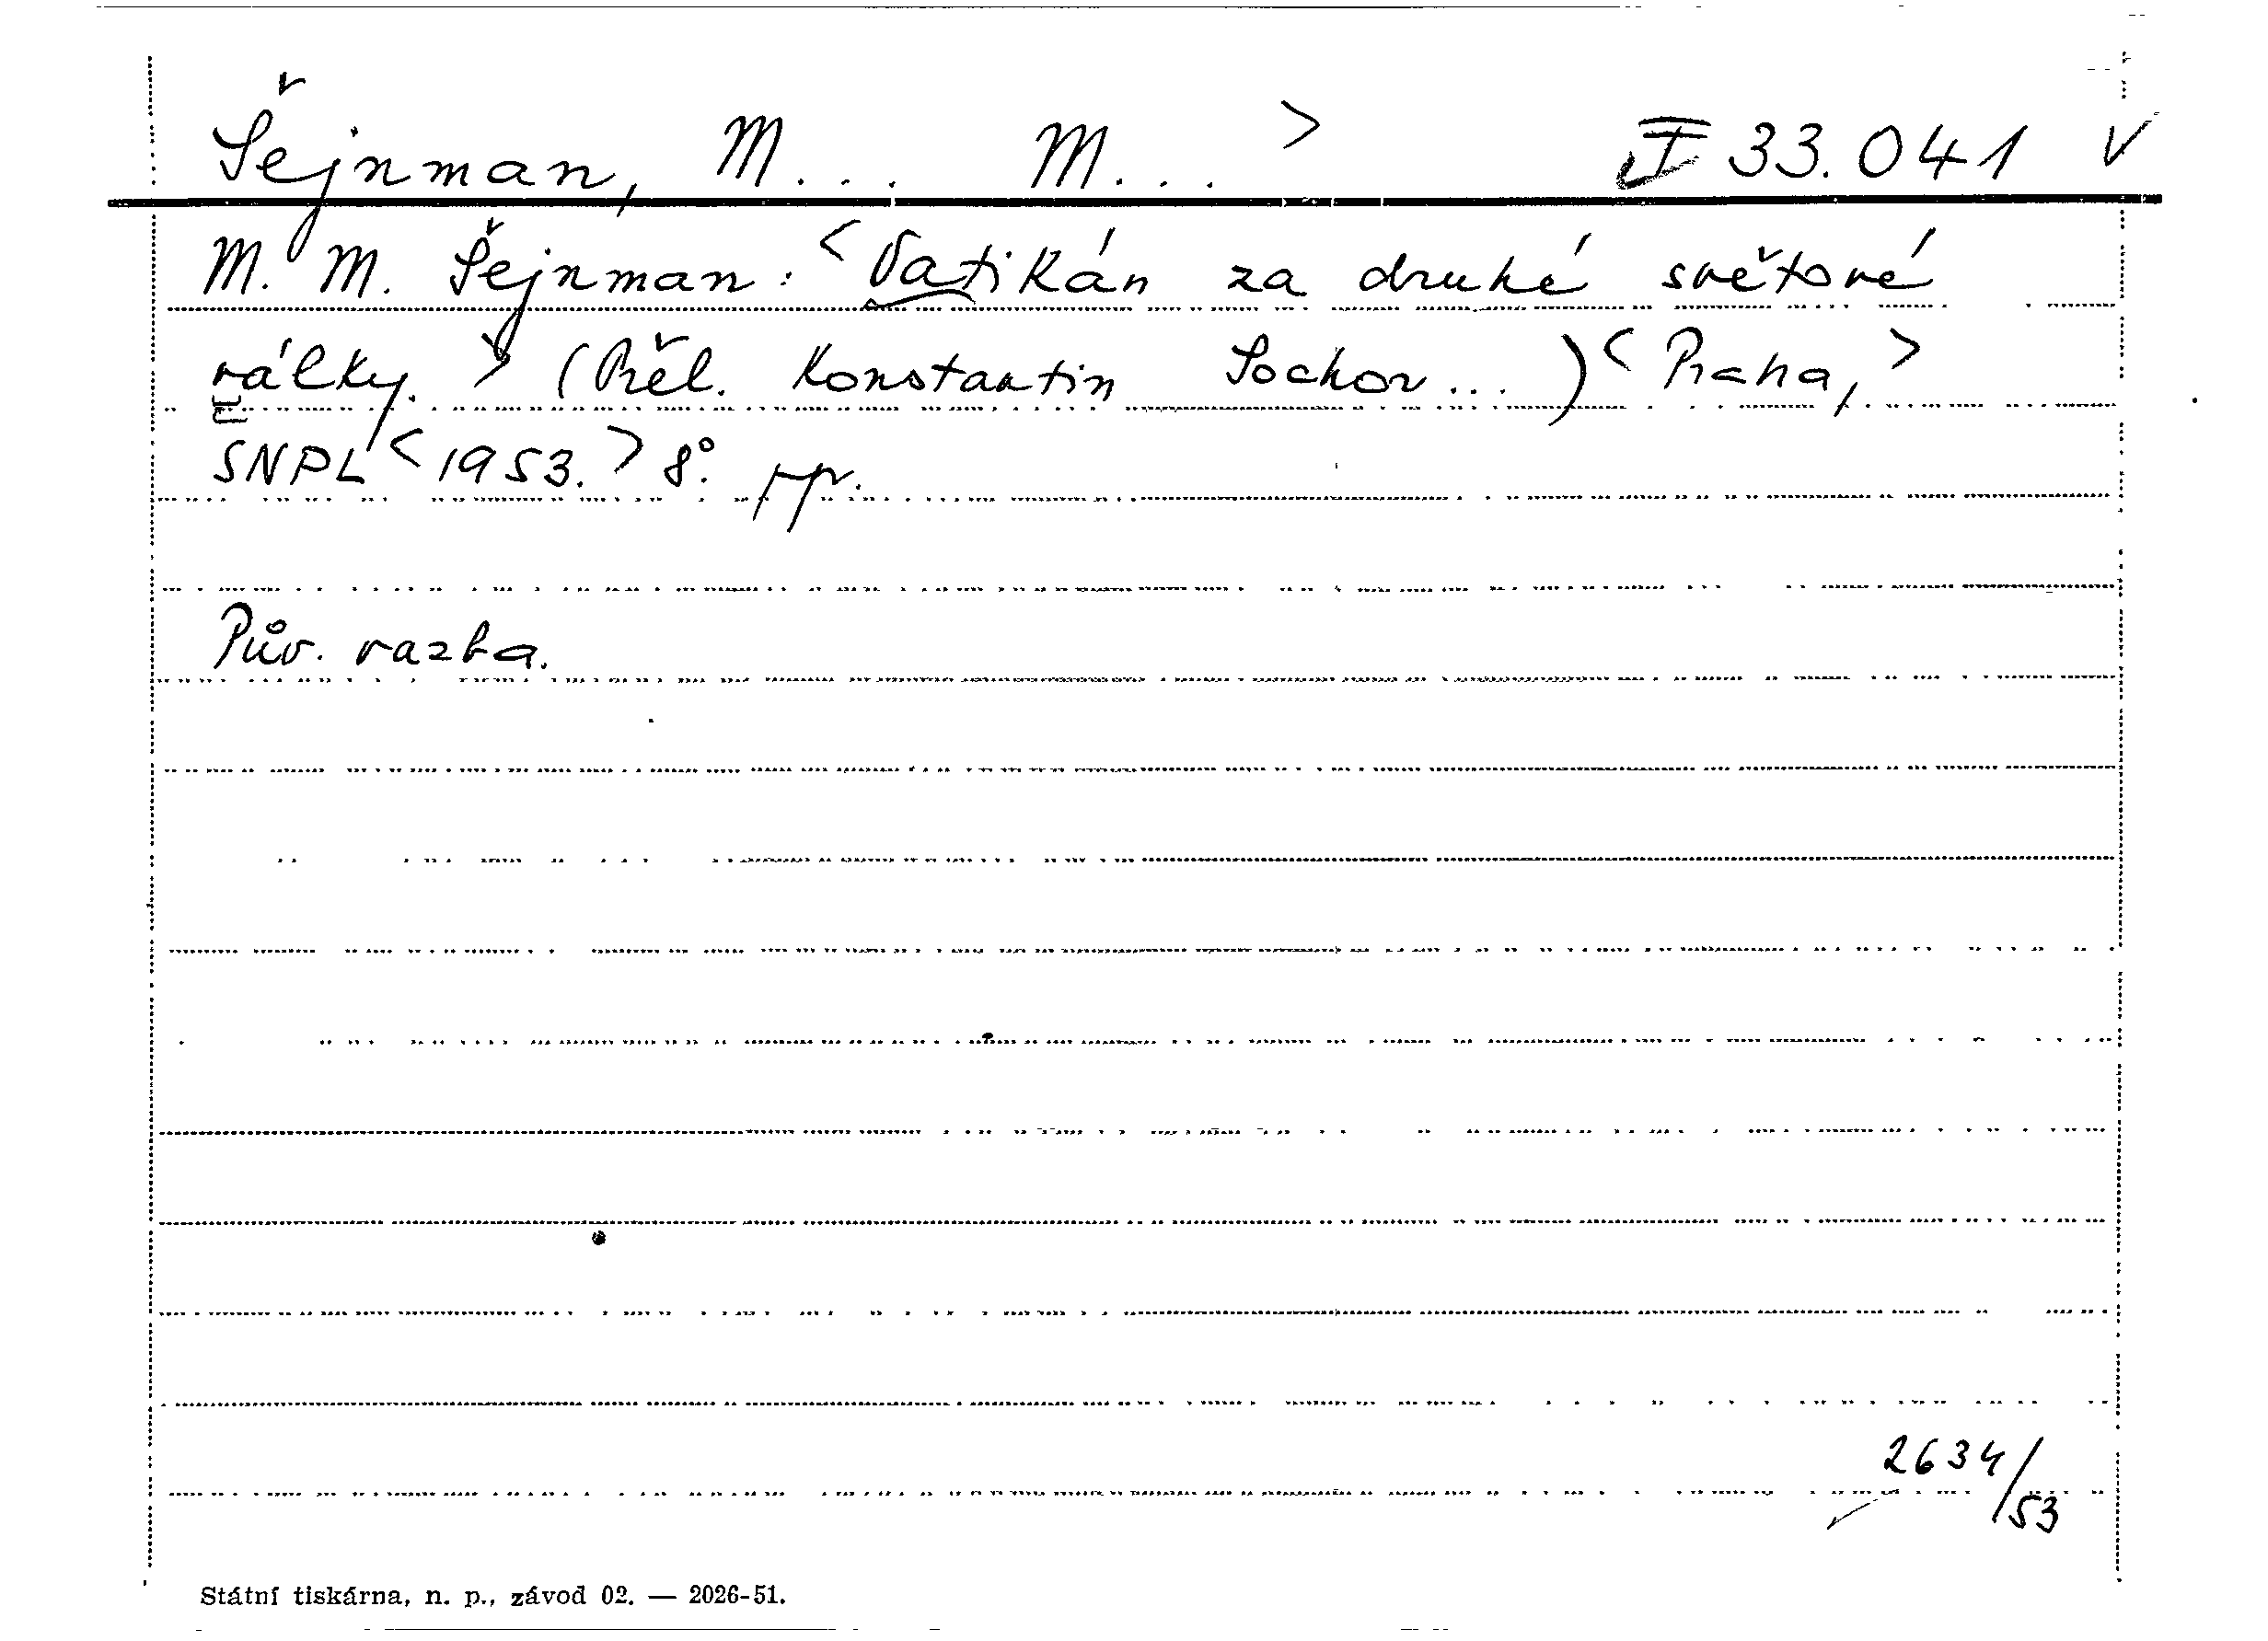 Šejnman, M... M... > I 33.041 V
M. M. Šejnman: <Vatikán za druhé světové
války.> (Přel. Konstantin Sochor...) <Praha,>
SNPL <1953.> 8°. pp.
Pův. vazba.
2634/53
Státní tiskárna, n. p., závod 02. — 2026-51.